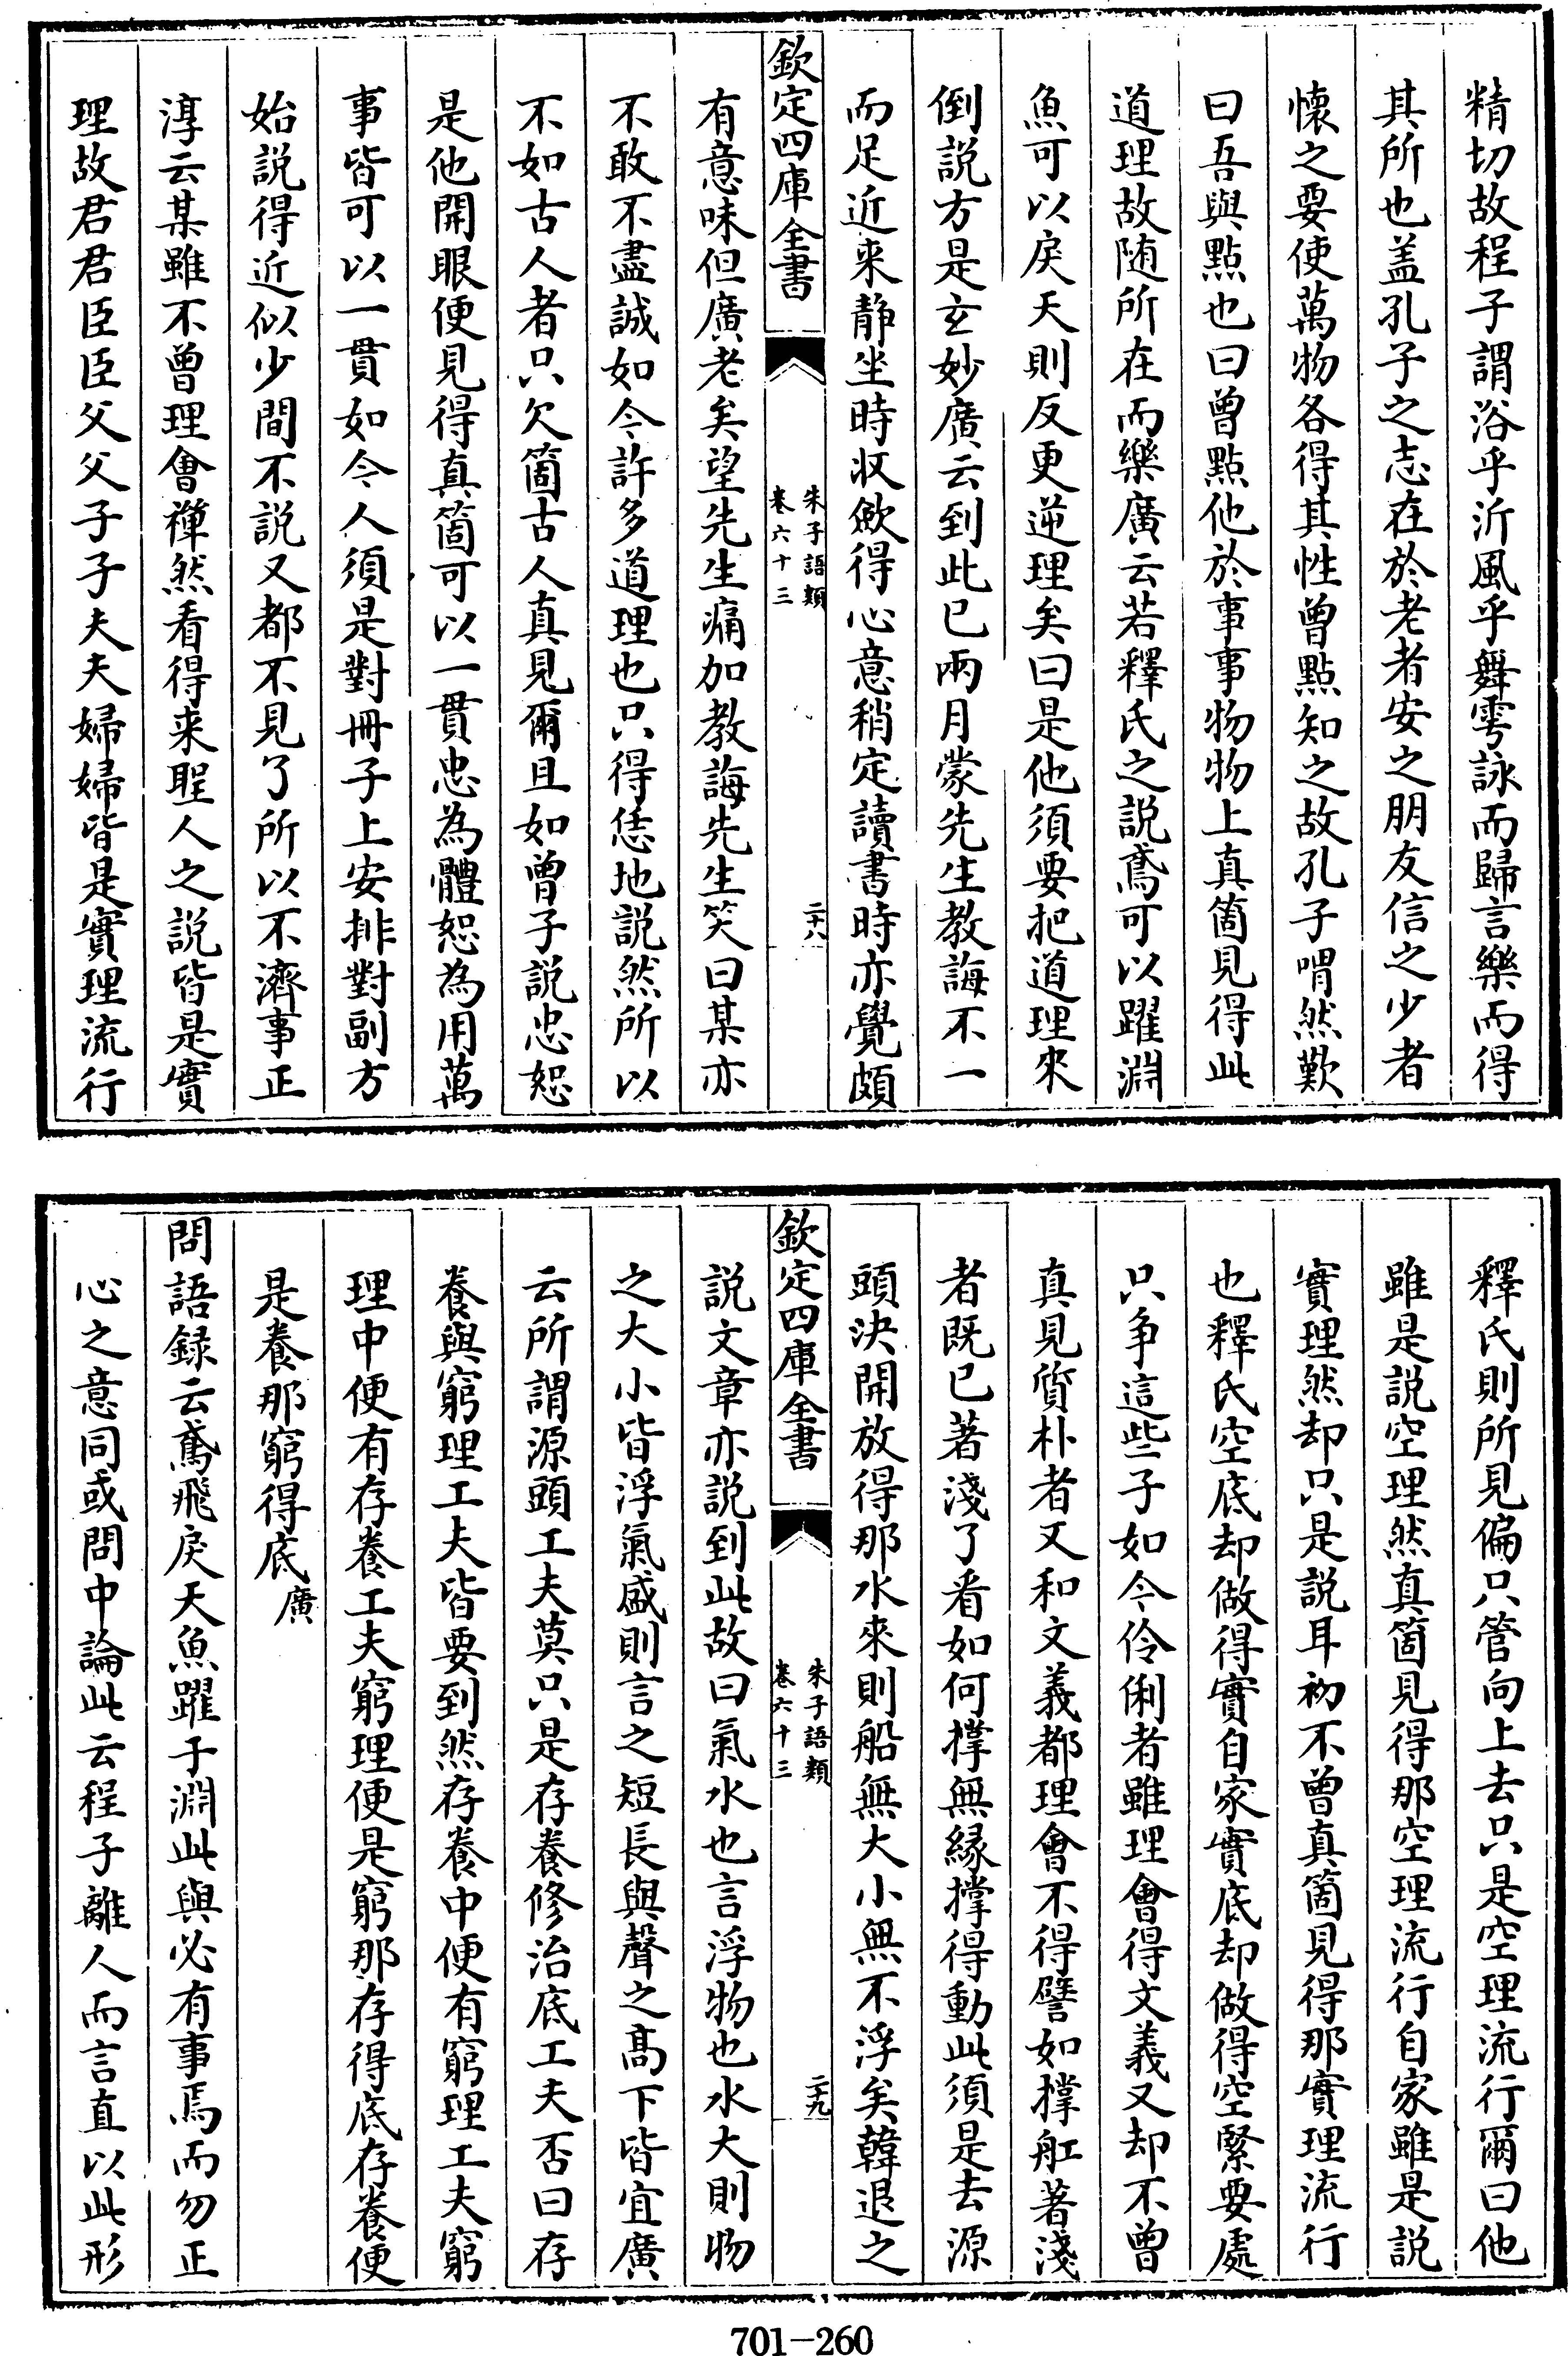 精切故程子謂浴乎沂風乎舞雩詠而歸言樂而得
其所也盖孔子之志在於老者安之朋友信之少者
懷之要使萬物各得其性曾點知之故孔子喟然歎
曰吾與點也曰曾點他於事事物物上真箇見得此
道理故随所在而樂廣云若釋氏之説鳶可以躍淵
魚可以戾天則反更逆理矣曰是他須要把道理來
倒説方是玄妙廣云到此已兩月蒙先生教誨不一
而足近来静坐時収歛得心意稍定讀書時亦覺頗
欽定四庫全書
朱子語類
卷六十三
二十八
有意味但廣老矣望先生痛加教誨先生笑曰某亦
不敢不盡誠如今許多道理也只得恁地説然所以
不如古人者只欠箇古人真見爾且如曾子説忠恕
是他開眼便見得真箇可以一貫忠為體恕為用萬
事皆可以一貫如今人須是對冊子上安排對副方
始説得近似少間不説又都不見了所以不濟事正
淳云某雖不曾理會禪然看得来聖人之説皆是實
理故君君臣臣父父子子夫夫婦婦皆是實理流行
釋氏則所見偏只管向上去只是空理流行爾曰他
雖是説空理然真箇見得那空理流行自家雖是説
實理然却只是説耳初不曾真箇見得那實理流行
也釋氏空底却做得實自家實底却做得空緊要處
只争這些子如今伶俐者雖理會得文義又却不曾
真見質朴者又和文義都理會不得譬如撑舡著淺
者既已著淺了看如何撑無緣撑得動此須是去源
頭決開放得那水來則船無大小無不浮矣韓退之
欽定四庫全書
朱子語類
卷六十三
二十九
説文章亦説到此故曰氣水也言浮物也水大則物
之大小皆浮氣盛則言之短長與聲之髙下皆宜廣
云所謂源頭工夫莫只是存養修治底工夫否曰存
養與窮理工夫皆要到然存養中便有窮理工夫窮
理中便有存養工夫窮理便是窮那存得底存養便
是養那窮得底廣
問語録云鳶飛戾天魚躍于淵此與必有事焉而勿正
心之意同或問中論此云程子離人而言直以此形
701-260